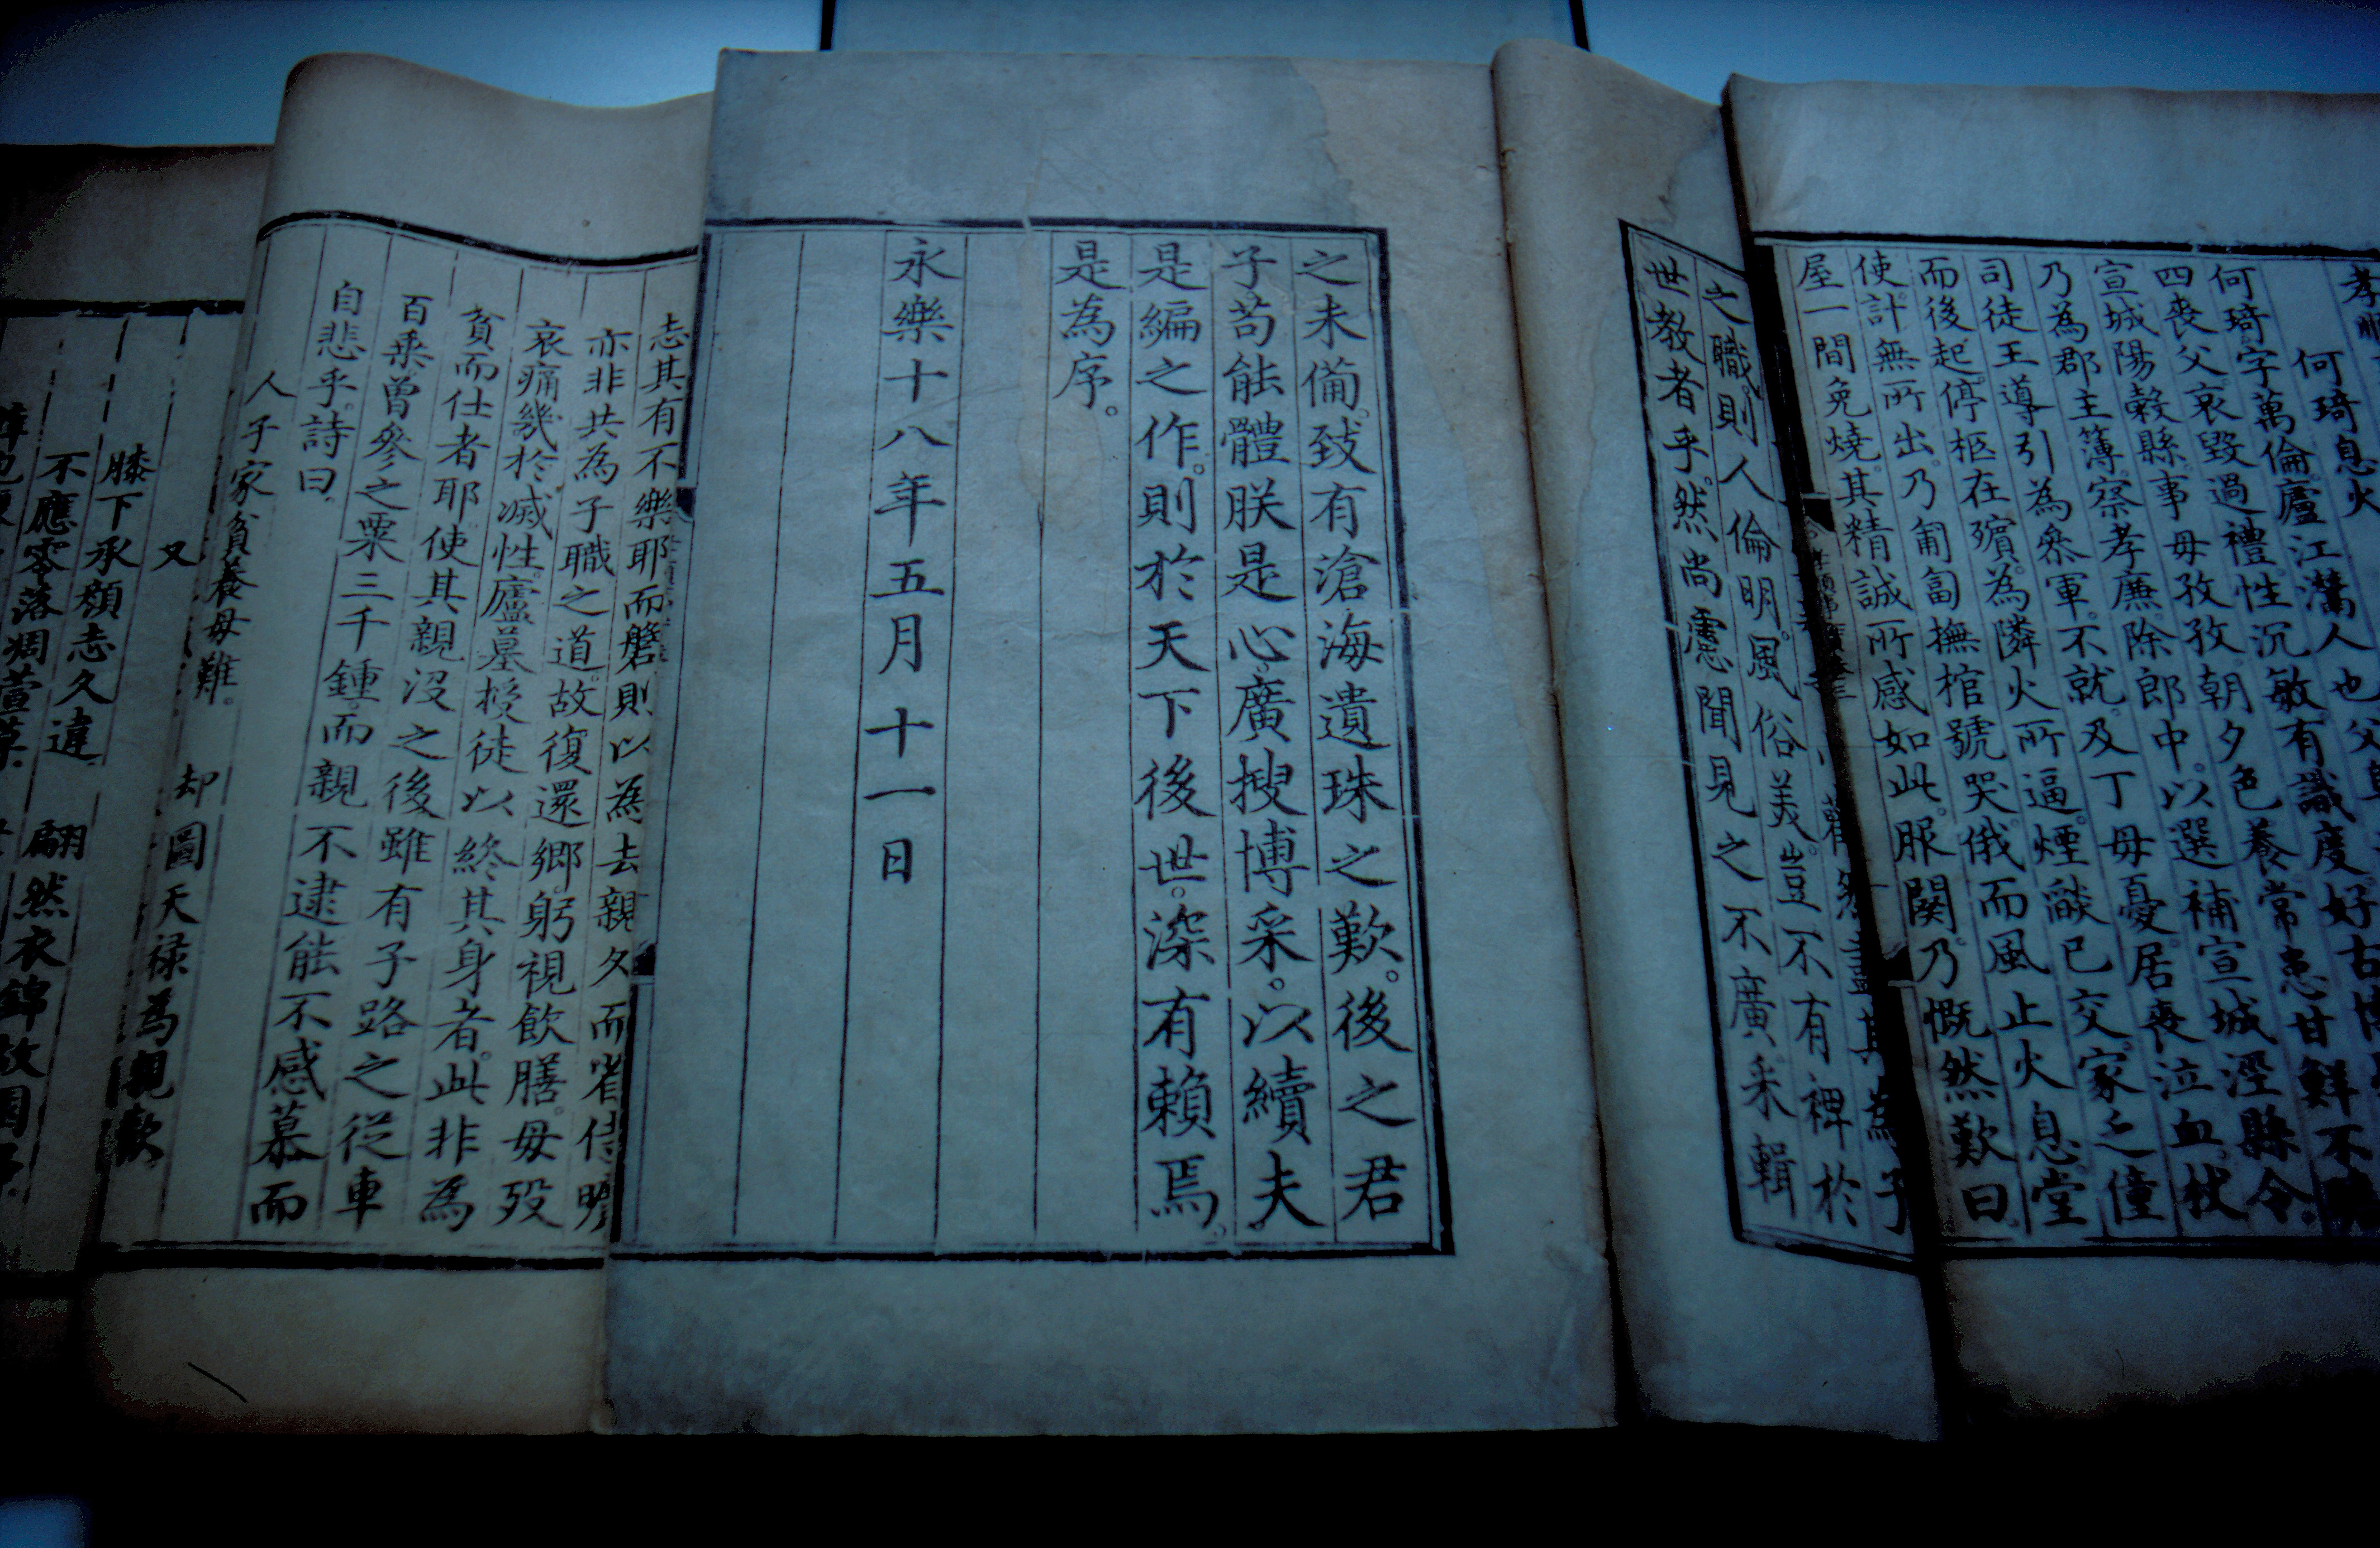 何琦息火
何琦。字萬倫。廬江灊人也。父
有識度。好古
四喪父。哀毀過禮。性沉敏
色養。常患甘鮮不
宣城陽穀縣事母孜孜。朝夕
宣城涇縣令。
乃為郡主簿。察孝廉。除郎中。以選補
司徒王導引為叅軍。不就。及丁母憂。居喪泣血。杖
而後起。停柩在殯。為隣火所逼。煙燄已交。家乏僮
使。計無所出。乃匍匐撫棺號哭。俄而風止火息。堂
屋一間免燒。其精誠所感如此。服闋。乃慨然歎曰。
之職。則人倫明。風俗美。豈不有裨於
世教者乎。然尚慮聞見之不廣。采輯
之未備。致有滄海遺珠之歎。後之君
子。苟能體朕是心。廣搜博采。以續夫
是編之作。則於天下後世。深有賴焉。
是為序。
永樂十八年五月十一日
志其有不樂耶。而磐則以為去親夕而省侍
亦非共為子職之道。故復還鄉躬視飲膳。母歿
哀痛幾於滅性。廬墓授徒以終其身者。此非為
貧而仕者耶。使其親沒之後。雖有子路之從車
百乘。曾參之粟三千鍾。而親不逮。能不感慕而
自悲乎。詩曰。
人子家貧養母難。
却圖天祿為親歡
又
膝下承顏志久違
不應零落凋萱草
翩然衣錦故園